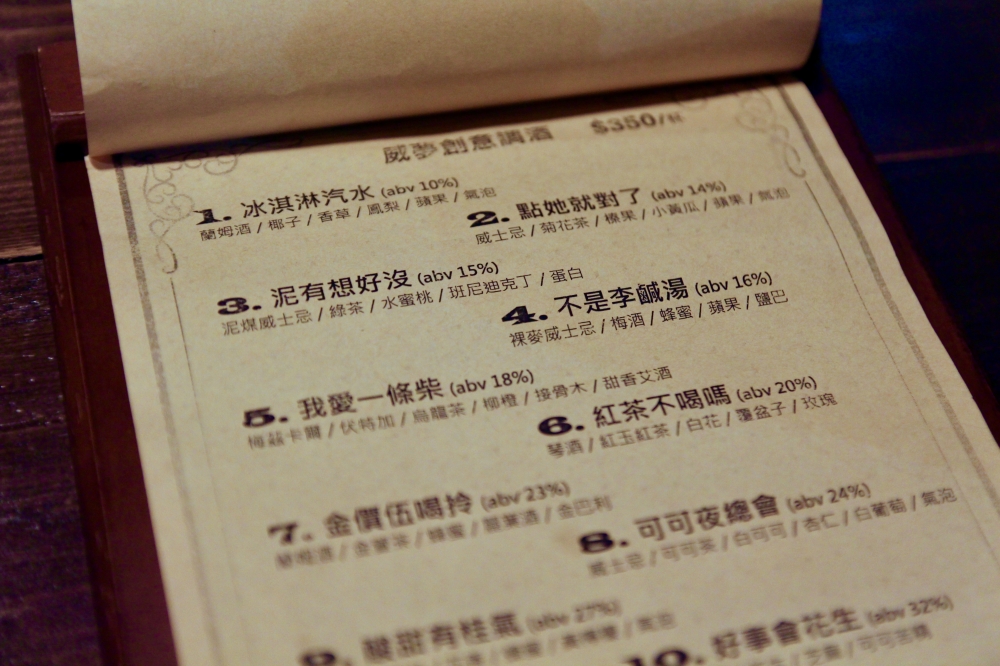 威夢創意調酒 $350/杯
1. 冰淇淋汽水 (abv 10%)
蘭姆酒 / 椰子 / 香草 / 鳳梨 / 蘋果 / 氣泡
2. 點她就對了 (abv 14%)
威士忌 / 菊花茶 / 榛果 / 小黃瓜 / 蘋果 / 氣泡
3. 泥有想好沒 (abv 15%)
泥煤威士忌 / 綠茶 / 水蜜桃 / 班尼迪克丁 / 蛋白
4. 不是李鹹湯 (abv 16%)
裸麥威士忌 / 梅酒 / 蜂蜜 / 蘋果 / 鹽巴
5. 我愛一條柴 (abv 18%)
梅茲卡爾 / 伏特加 / 烏龍茶 / 柳橙 / 接骨木 / 甜香艾酒
6. 紅茶不喝嗎 (abv 20%)
琴酒 / 紅玉紅茶 / 白花 / 覆盆子 / 玫瑰
7. 金價伍喝拎 (abv 23%)
蘭姆酒 / 金萱茶 / 蜂蜜 / 金巴利
8. 可可夜總會 (abv 24%)
威士忌 / 可可茶 / 白可可 / 杏仁 / 白葡萄 / 氣泡
9. 酸甜有桂氣 (abv 27%)
10. 好事會花生 (abv 32%)